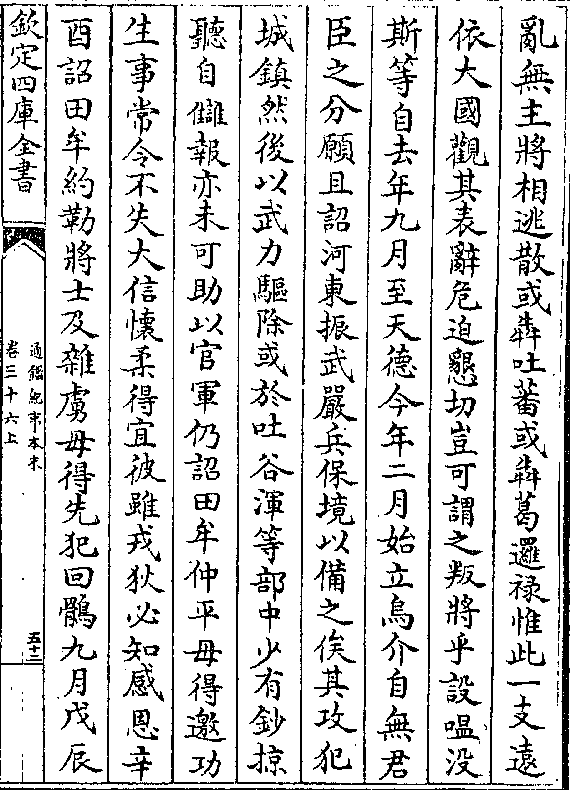 亂無主將相逃散或犇吐蕃或犇葛邏祿惟此一支遠
依大國觀其表辭危迫懇切豈可謂之叛將乎設嗢没
斯等自去年九月至天德今年二月始立烏介自無君
臣之分願且詔河東振武嚴兵保境以備之俟其攻犯
城鎮然後以武力驅除或於吐谷渾等部中少有鈔掠
聽自讎報亦未可助以官軍仍詔田牟仲平毋得邀功
生事常令不失大信懷柔得宜彼雖戎狄必知感恩辛
酉詔田牟約勒將士及雜虜毋得先犯回鶻九月戊辰
欽定四庫全書
通鑑紀事本末
卷三十六上
五十二